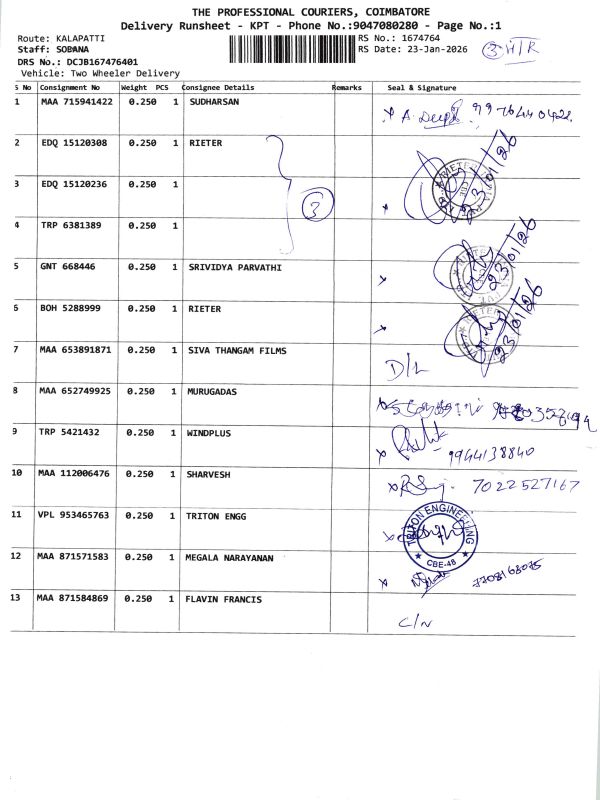 THE PROFESSIONAL COURIERS, COIMBATORE
Delivery Runsheet - KPT - Phone No.:9047080280 - Page No.:1
Route: KALAPATTI
Staff: SOBANA
DRS No.: DCJB167476401
Vehicle: Two Wheeler Delivery
RS No.: 1674764
RS Date: 23-Jan-2026
3 H/R
S No Consignment No Weight PCS Consignee Details Remarks Seal & Signature
1 MAA 715941422 0.250 1 SUDHARSAN A. Deepa
2 EDQ 15120308 0.250 1 RIETER 23/01/26
3 EDQ 15120236 0.250 1 3
4 TRP 6381389 0.250 1
5 GNT 668446 0.250 1 SRIVIDYA PARVATHI 23/01/26
6 BOH 5288999 0.250 1 RIETER 23/01/26
7 MAA 653891871 0.250 1 SIVA THANGAM FILMS D/L
8 MAA 652749925 0.250 1 MURUGADAS
9 TRP 5421432 0.250 1 WINDPLUS 9944138840
10 MAA 112006476 0.250 1 SHARVESH 7022527167
11 VPL 953465763 0.250 1 TRITON ENGG TRITON ENGINEERING CBE-48
12 MAA 871571583 0.250 1 MEGALA NARAYANAN
13 MAA 871584869 0.250 1 FLAVIN FRANCIS C/N